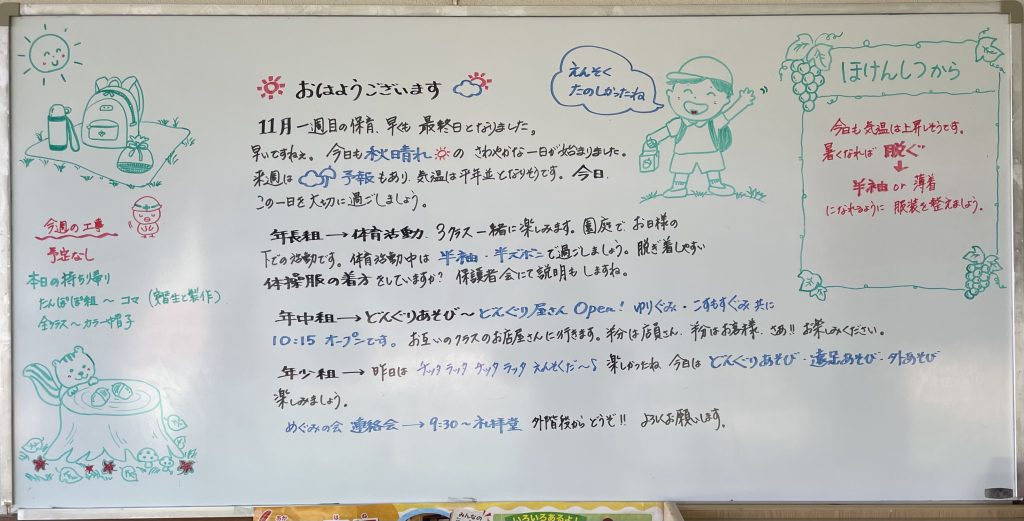 えんそく
たのしかったね
おはようございます
11月一週目の保育、早くも最終日となりました。
早いですねぇ。今日も秋晴れのさわやかな一日が始まりました。
来週は予報もあり、気温は平年並となりそうです。今日
この一日を大切に過ごしましょう。
年長組→体育活動 3クラス一緒に楽しみます。園庭でお日様の
下での活動です。体育活動中は半袖・半ズボンで過ごしましょう。脱ぎ着しやすい
体操服の着方をしていますか? 保護者会にて説明もしますね。
年中組→どんぐりあそび〜どんぐり屋さんOpen! ゆりぐみ・こすもすぐみ共に
10:15 オープンです。お互いのクラスのお店屋さんに行きます。半分は店員さん、半分はお客様、さあ!!お楽しみください。
年少組→昨日はケッタラッタ ケッタラッタ えんそくだ〜♪ 楽しかったね 今日はどんぐりあそび・遠足あそび・外あそび
楽しみましょう。
めぐみの会 連絡会→9:30〜礼拝堂 外階段からどうぞ!! よろしくお願いします。
今週の工事
予定なし
本日の持ち帰り
たんぽぽ組〜コマ(実習生と製作)
全クラス〜カラー帽子
ほけんしつから
今日も気温は上昇しそうです。
暑くなれば脱ぐ
↓
半袖or薄着
になれるように服装を整えましょう。
みんなの
いろいろあるよ!